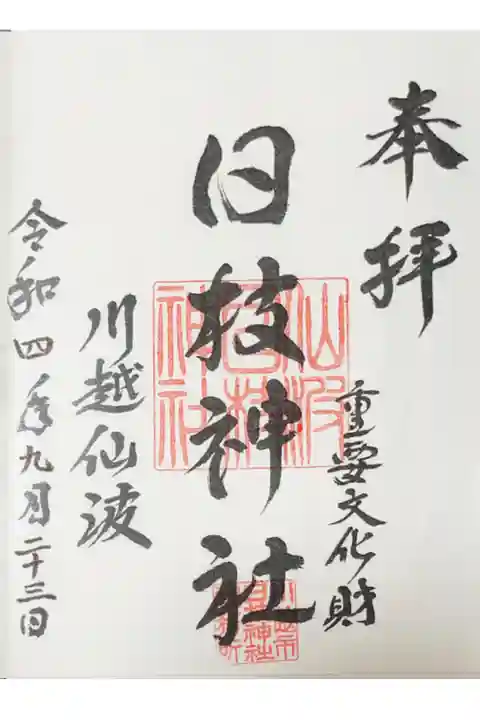 奉拝
重要文化財
日枝神社
仙波
日枝
神社
川越仙波
令和四年九月二十三日